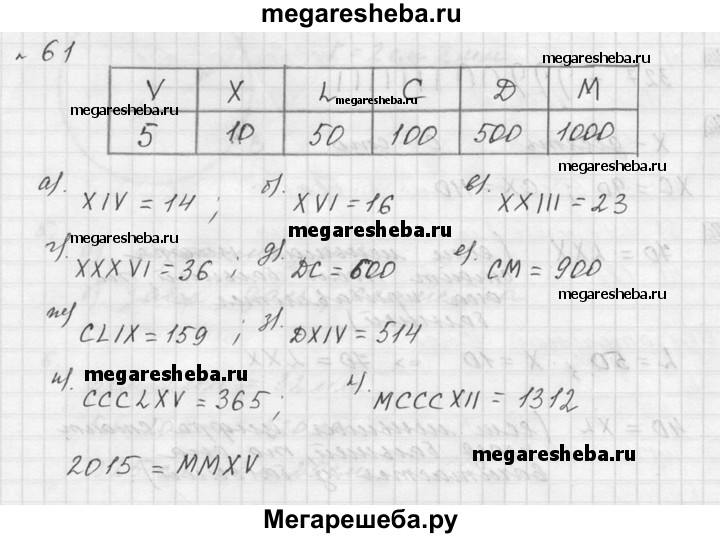 megaresheba.ru
№ 61
megaresheba.ru
V X L C D M
megaresheba.ru megaresheba.ru
5 10 50 100 500 1000
megaresheba.ru
а). XIV = 14 ; б). XVI = 16 в). XXIII = 23
megaresheba.ru megaresheba.ru
г). XXXVI = 36 ; д). DC = 600 е). CM = 900
megaresheba.ru
ж) CLIX = 159 ; з). DXIV = 514
megaresheba.ru
и). CCCLXV = 365 ; MCCCXII = 1312
2015 = MMXV
megaresheba.ru
Мегарешеба.ру